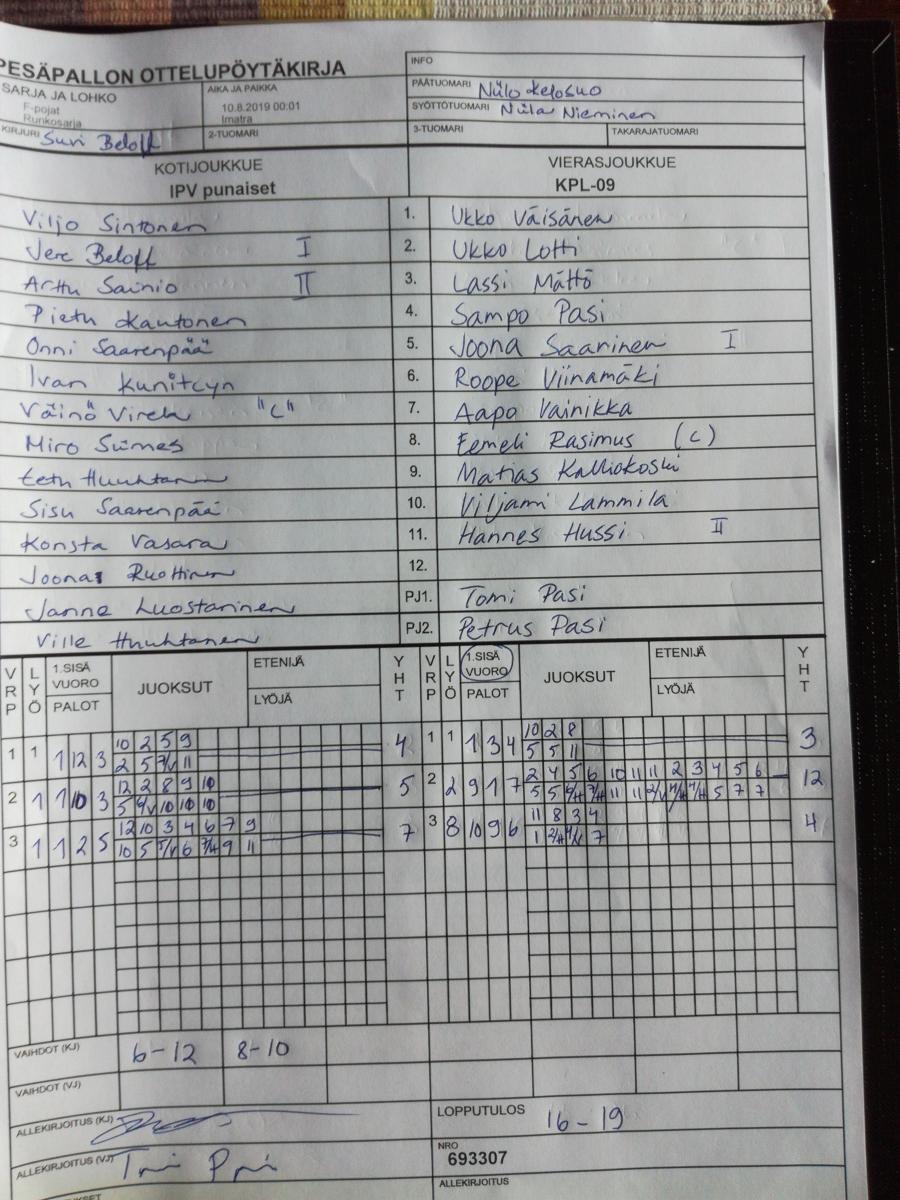 PESÄPALLON OTTELUPÖYTÄKIRJA
INFO
SARJA JA LOHKO
F-pojat
Runkosarja
AIKA JA PAIKKA
10.8.2019 00:01
Imatra
PÄÄTUOMARI Niilo Kelosuo
SYÖTTÖTUOMARI Niila Nieminen
KIRJURI Suvi Beloff
2-TUOMARI
3-TUOMARI
TAKARAJATUOMARI
KOTIJOUKKUE
IPV punaiset
VIERASJOUKKUE
KPL-09
Viljo Sintonen 1. Ukko Väisänen
Jere Beloff I 2. Ukko Lotti
Arttu Sainio II 3. Lassi Mättö
Pietu Kautonen 4. Sampo Pasi
Onni Saarenpää 5. Joona Saarinen I
Ivan Kunitcyn 6. Roope Viinamäki
Väinö "C" 7. Aapo Vainikka
Miro Siimes 8. Eemeli Rasimus (C)
Eetu Huuhtanen 9. Matias Kalliokoski
Sisu Saarenpää 10. Viljami Lammila
Konsta Vasara 11. Hannes Hussi II
Joonas Ruottinen 12.
Janne Luostarinen PJ1. Tomi Pasi
Ville Huuhtanen PJ2. Petrus Pasi
VRP LYÖ 1.SISÄ VUORO PALOT JUOKSUT ETENIJÄ LYÖJÄ YHT VRP LYÖ 1.SISÄ VUORO PALOT JUOKSUT ETENIJÄ LYÖJÄ YHT
10 2 5 9 10 2 8
1 1 1 12 3 4 1 1 1 3 4 3
2 5 11 5 5 11
12 2 8 9 10 2 4 5 6 10 11 11 2 3 4 5 6
2 1 1 10 3 5 2 2 9 1 7 12
5 10 10 10 5 5 11 11 5 7 7
12 10 3 4 6 7 9 11 8 3 4
3 1 1 2 5 7 3 8 10 9 6 4
10 5 6 9 11 1 7
VAIHDOT (KJ) 6-12 8-10
VAIHDOT (VJ)
ALLEKIRJOITUS (KJ)
LOPPUTULOS 16-19
ALLEKIRJOITUS (VJ)
NRO
693307
ALLEKIRJOITUS